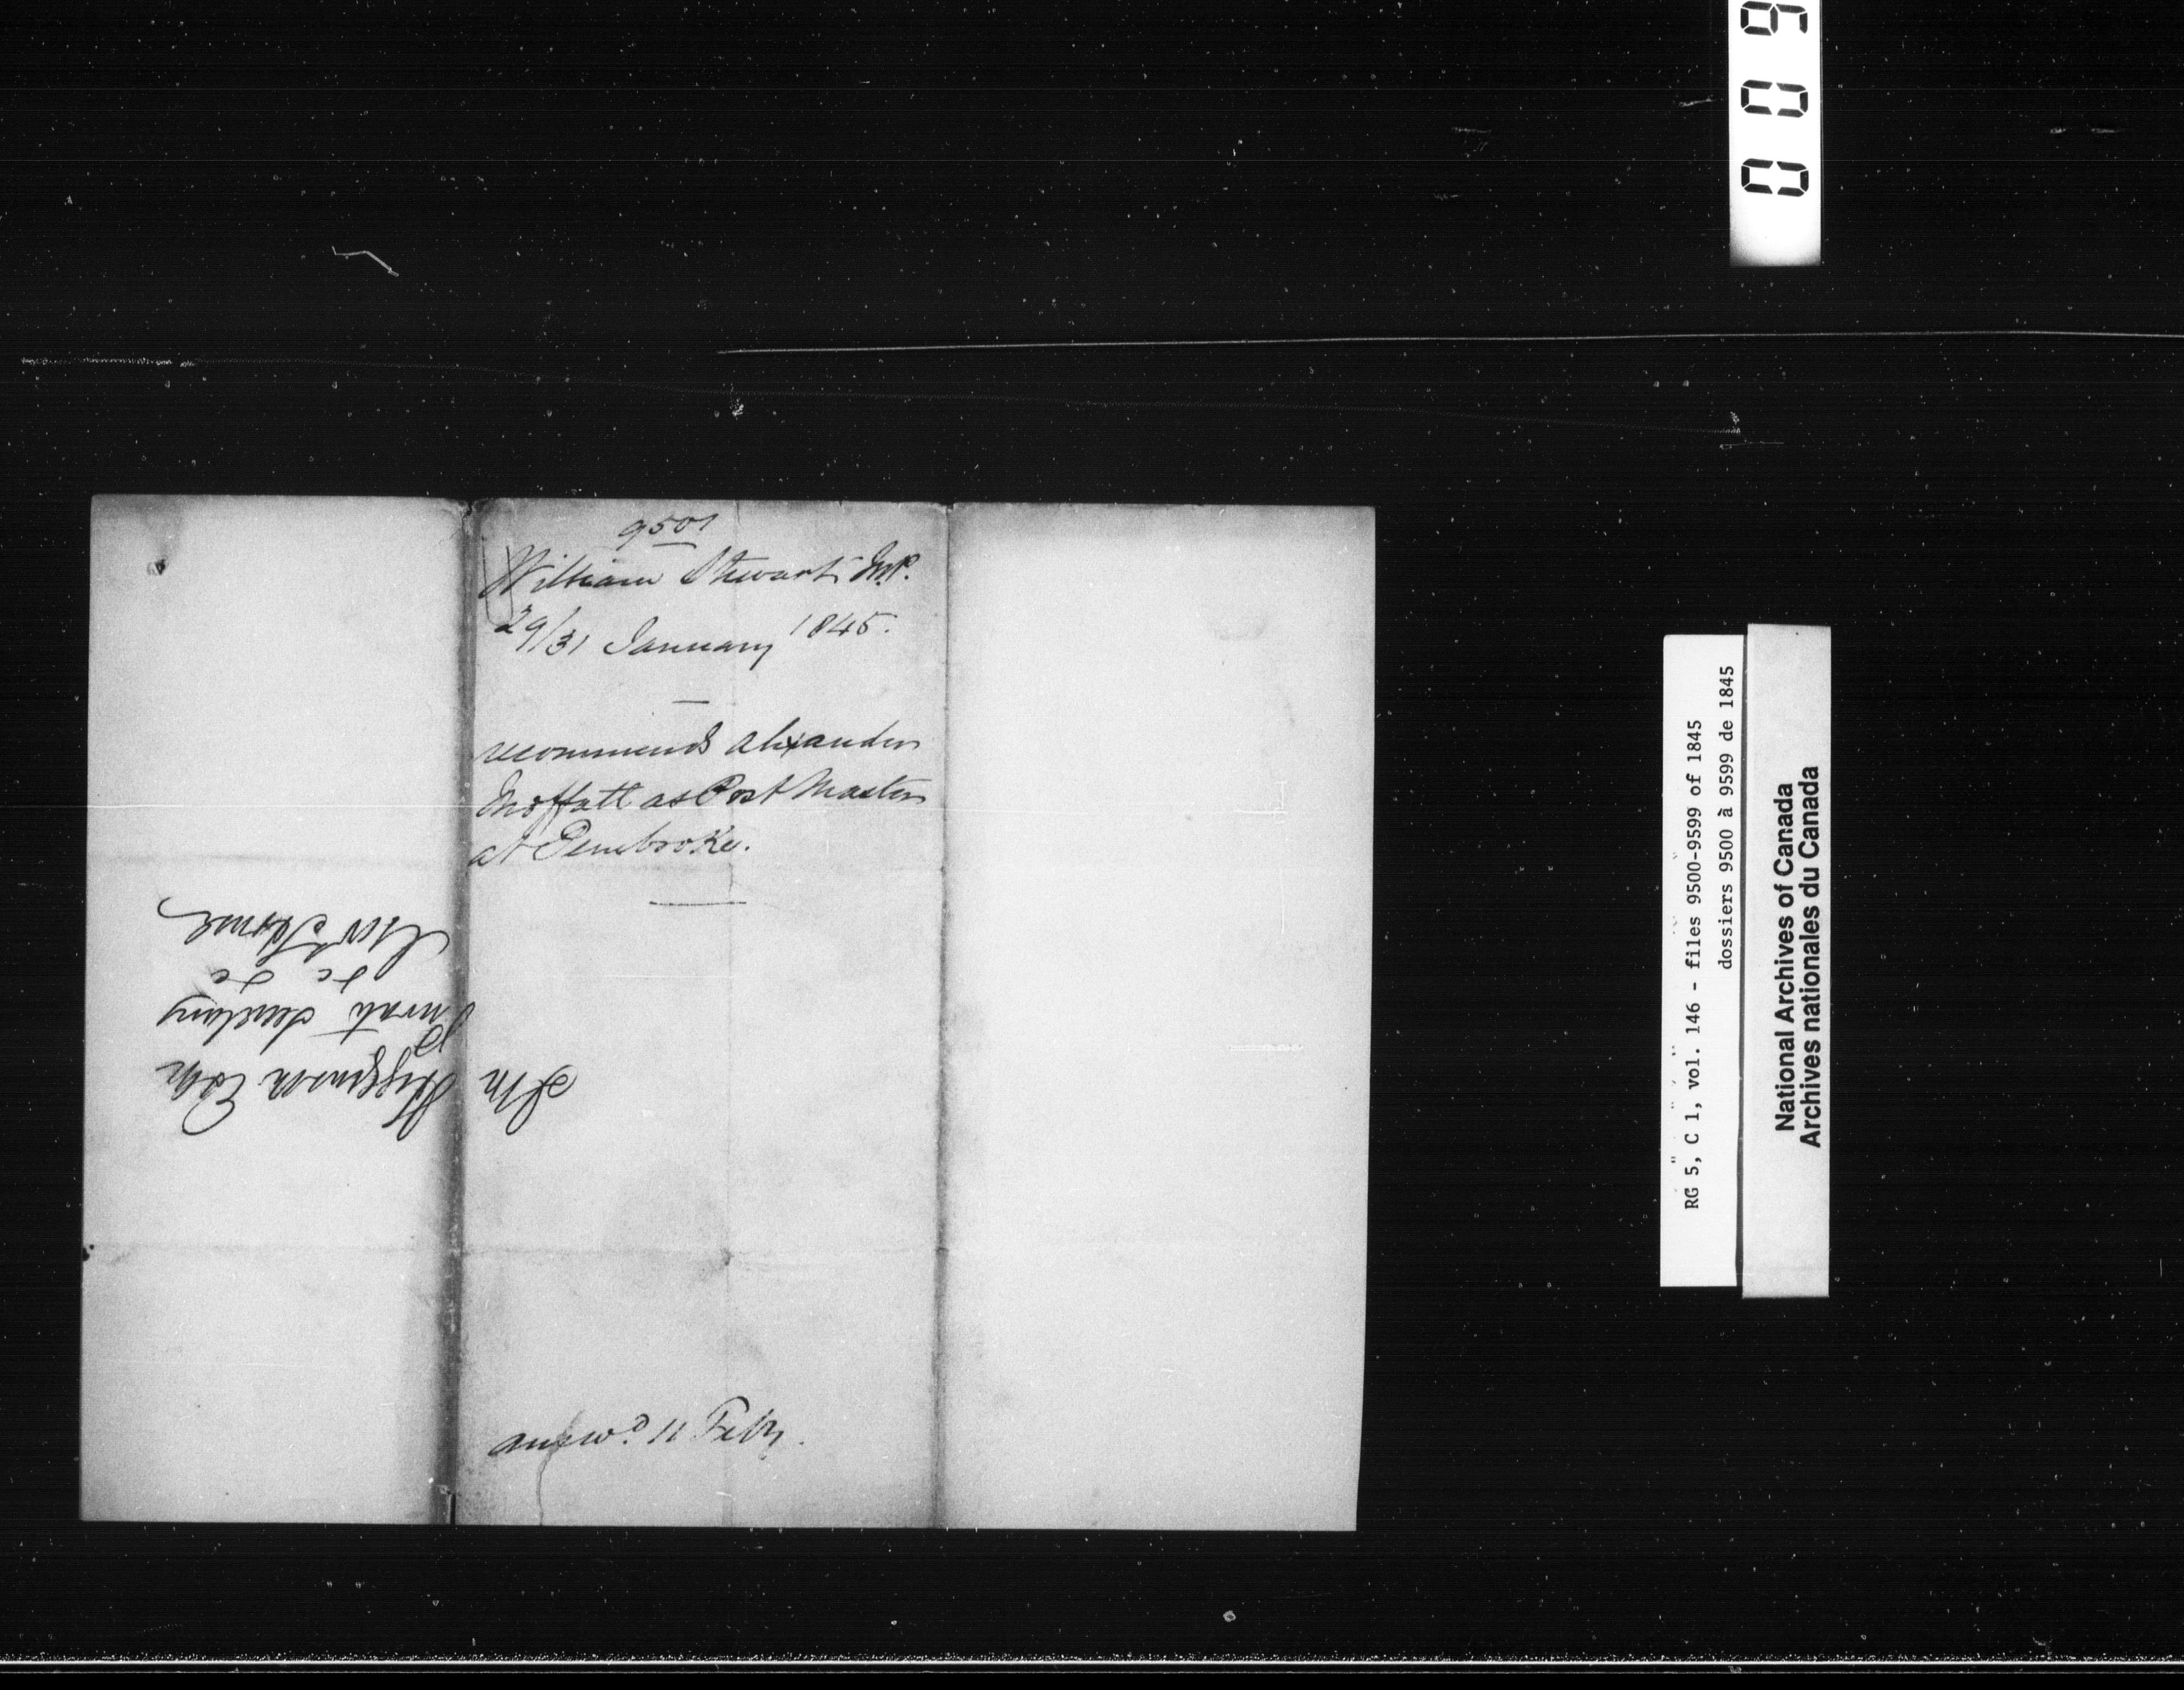 9501
William Stewart M.P.
29/31 January 1845.
recommends Alexander
Moffatt as Post Master
at Pembroke.
answd. 11 Feby.
Higginson Esqr
Private Secretary
&c &c
009
RG 5, C 1, vol. 146 - files 9500-9599 of 1845
dossiers 9500 à 9599 de 1845
National Archives of Canada
Archives nationales du Canada